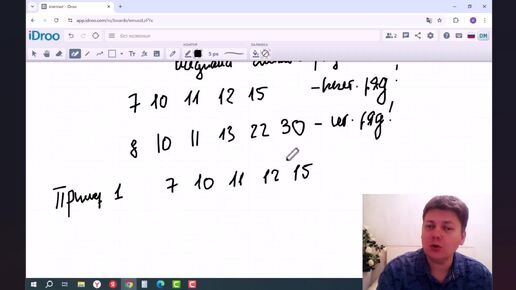 Untitled - iDroo
app.idroo.com/ru/boards/
iDroo
Без названия
КОНТУР
ЗАЛИВКА
5 px
2
DM
7 10 11 12 15 – нечет. ряд!
8 10 11 13 22 30 – чет. ряд!
Пример 1 7 10 11 12 15